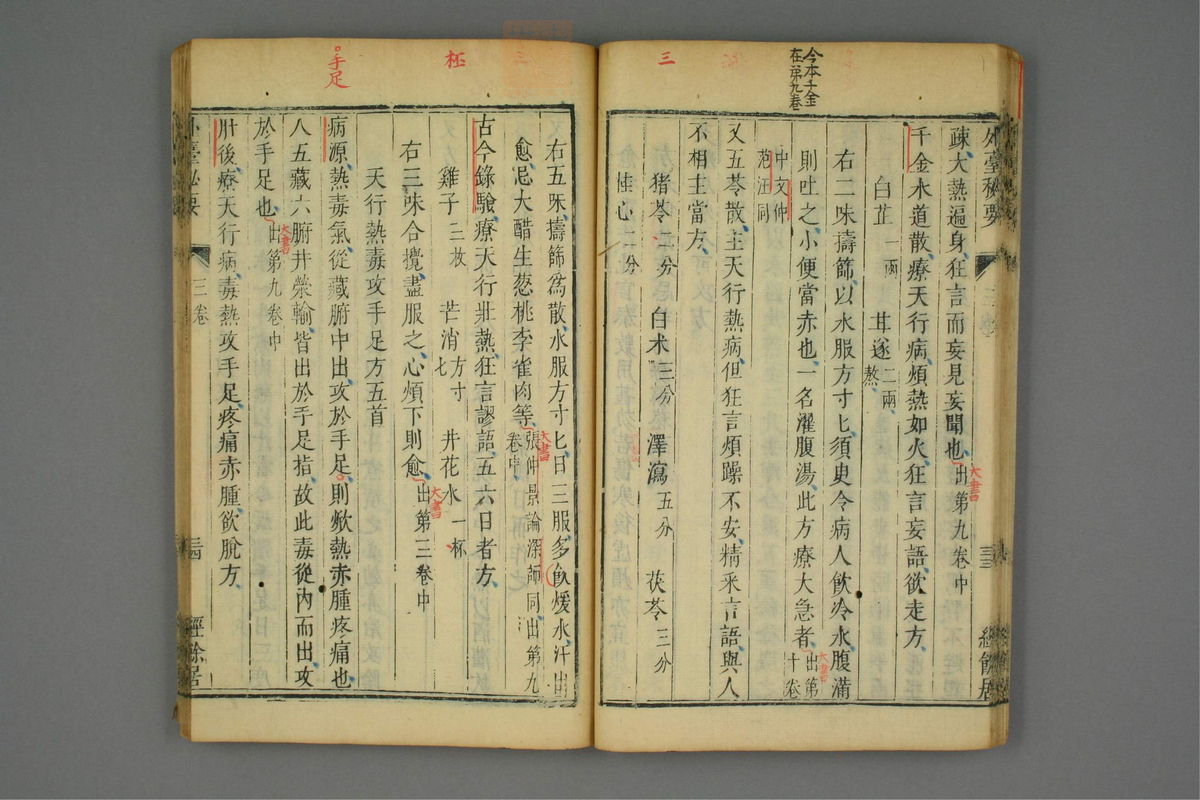 今本千金
在第九卷
三
外臺秘要
經餘居
疎大熱遍身狂言而妄見妄聞也出第九卷中
大書
千金水道散療天行病煩熱如火狂言妄語欲走方
白芷一兩 甘遂二兩熬
右二味擣篩以水服方寸匕須臾令病人飲冷水腹滿
則吐之小便當赤也一名濯腹湯此方療大急者出第十卷
大書
中文仲
范汪同
又五苓散主天行熱病但狂言煩躁不安精采言語與人
不相主當方
猪苓二分 白术三分 澤瀉五分 茯苓三分
桂心二分
右五味擣篩爲散水服方寸匕日三服多飲煖水汗出
愈忌大醋生葱桃李雀肉等張仲景論深師同出第九卷中
大書
古今錄驗療天行壯熱狂言謬語五六日者方
雞子三枚 芒消方寸七 井花水一杯
柸
右三味合攪盡服之心煩下則愈出第三卷中
大書
天行熱毒攻手足方五首
病源熱毒氣從藏腑中出攻於手足則焮熱赤腫疼痛也
手足
人五藏六腑井滎輸皆出於手足指故此毒從內而出攻
於手足也出第九卷中
大書
肝後療天行病毒熱攻手足疼痛赤腫欲脫方
外臺秘要
三卷
三四
經餘居